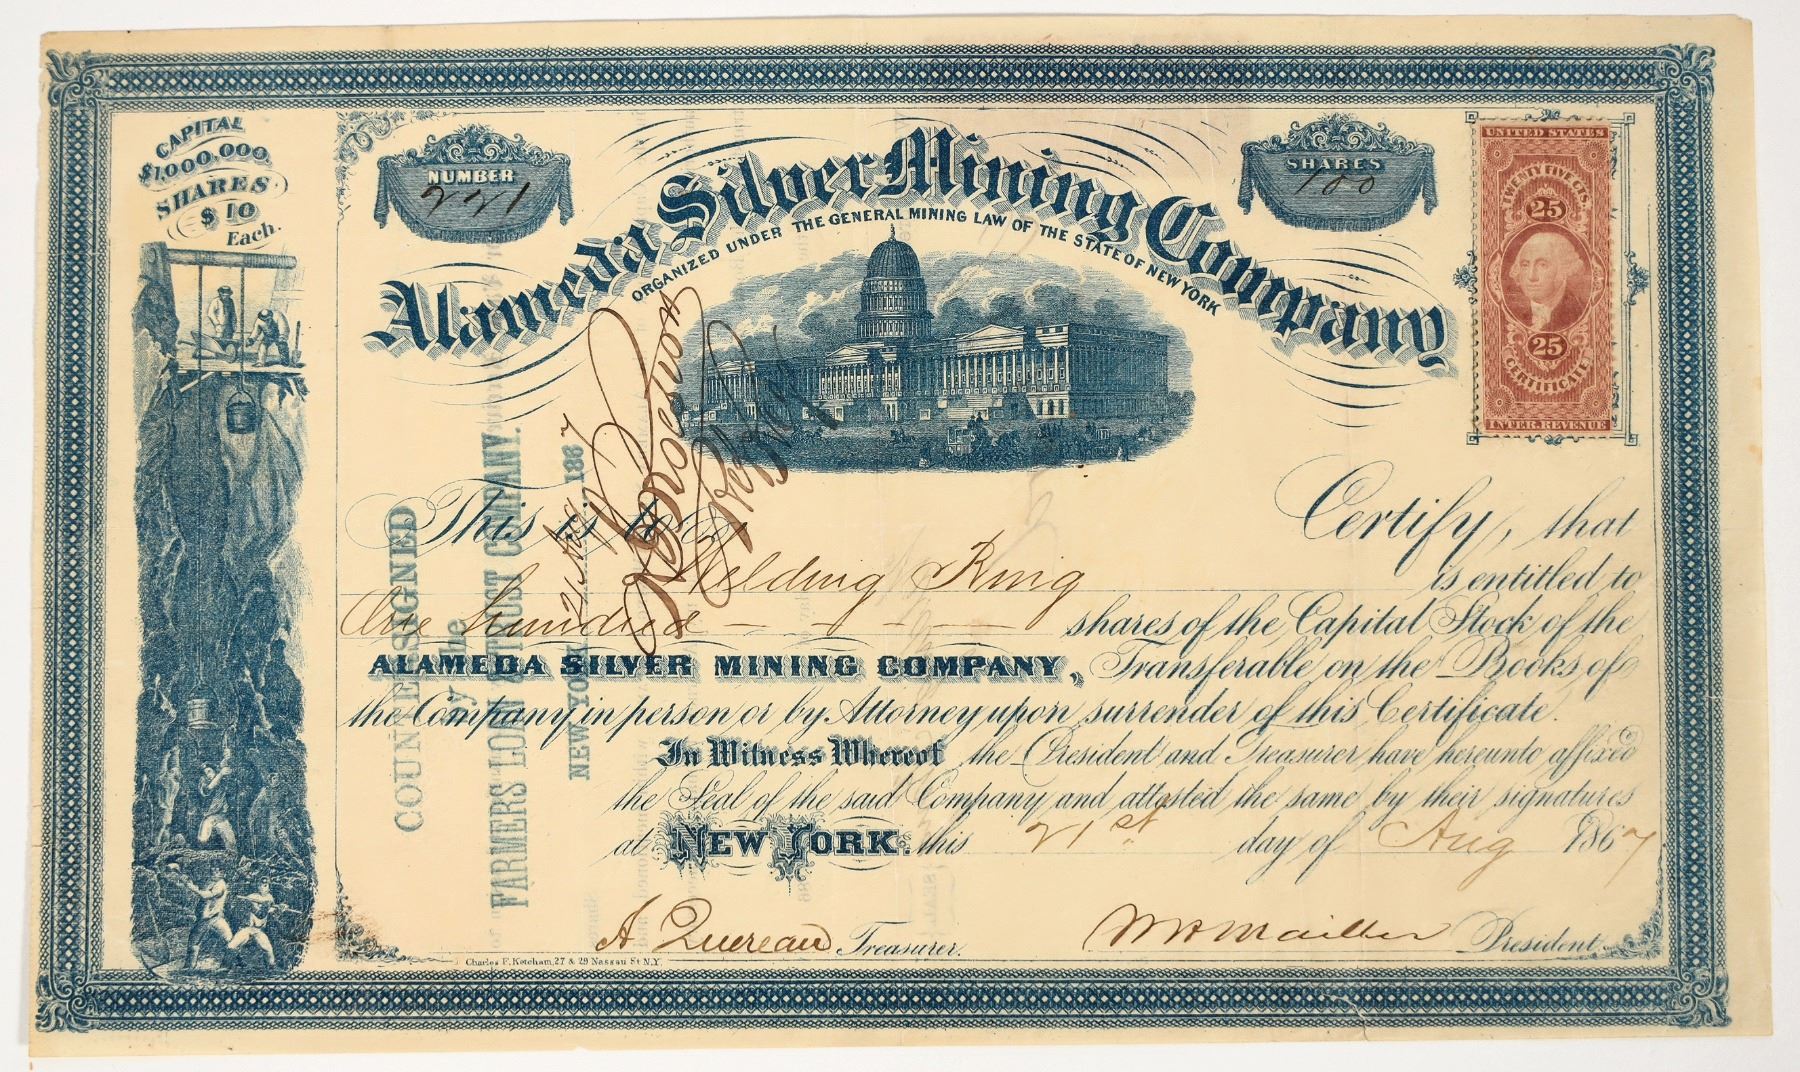 CAPITAL
$1,000,000,
SHARES
$10
Each.
NUMBER
221
Alameda Silver Mining Company
ORGANIZED UNDER THE GENERAL MINING LAW OF THE STATE OF NEW YORK
SHARES
100
UNITED STATES
TWENTY FIVE CTS.
25
25
CERTIFICATE
INTER. REVENUE
This is to Certify, that
Fielding King is entitled to
One hundred shares of the Capital Stock of the
ALAMEDA SILVER MINING COMPANY, Transferable on the Books of
the Company in person or by Attorney upon surrender of this Certificate.
In Witness Whereof the President and Treasurer have hereunto affixed
the Seal of the said Company and attested the same by their signatures
at NEW YORK. this 21st day of Aug 1867
A Quereau Treasurer.
President.
Charles F. Ketcham, 27 & 29 Nassau St N.Y.
COUNTERSIGNED
by the
"FARMERS LOAN & TRUST COMPANY.
NEW YORK 21 Aug 1867